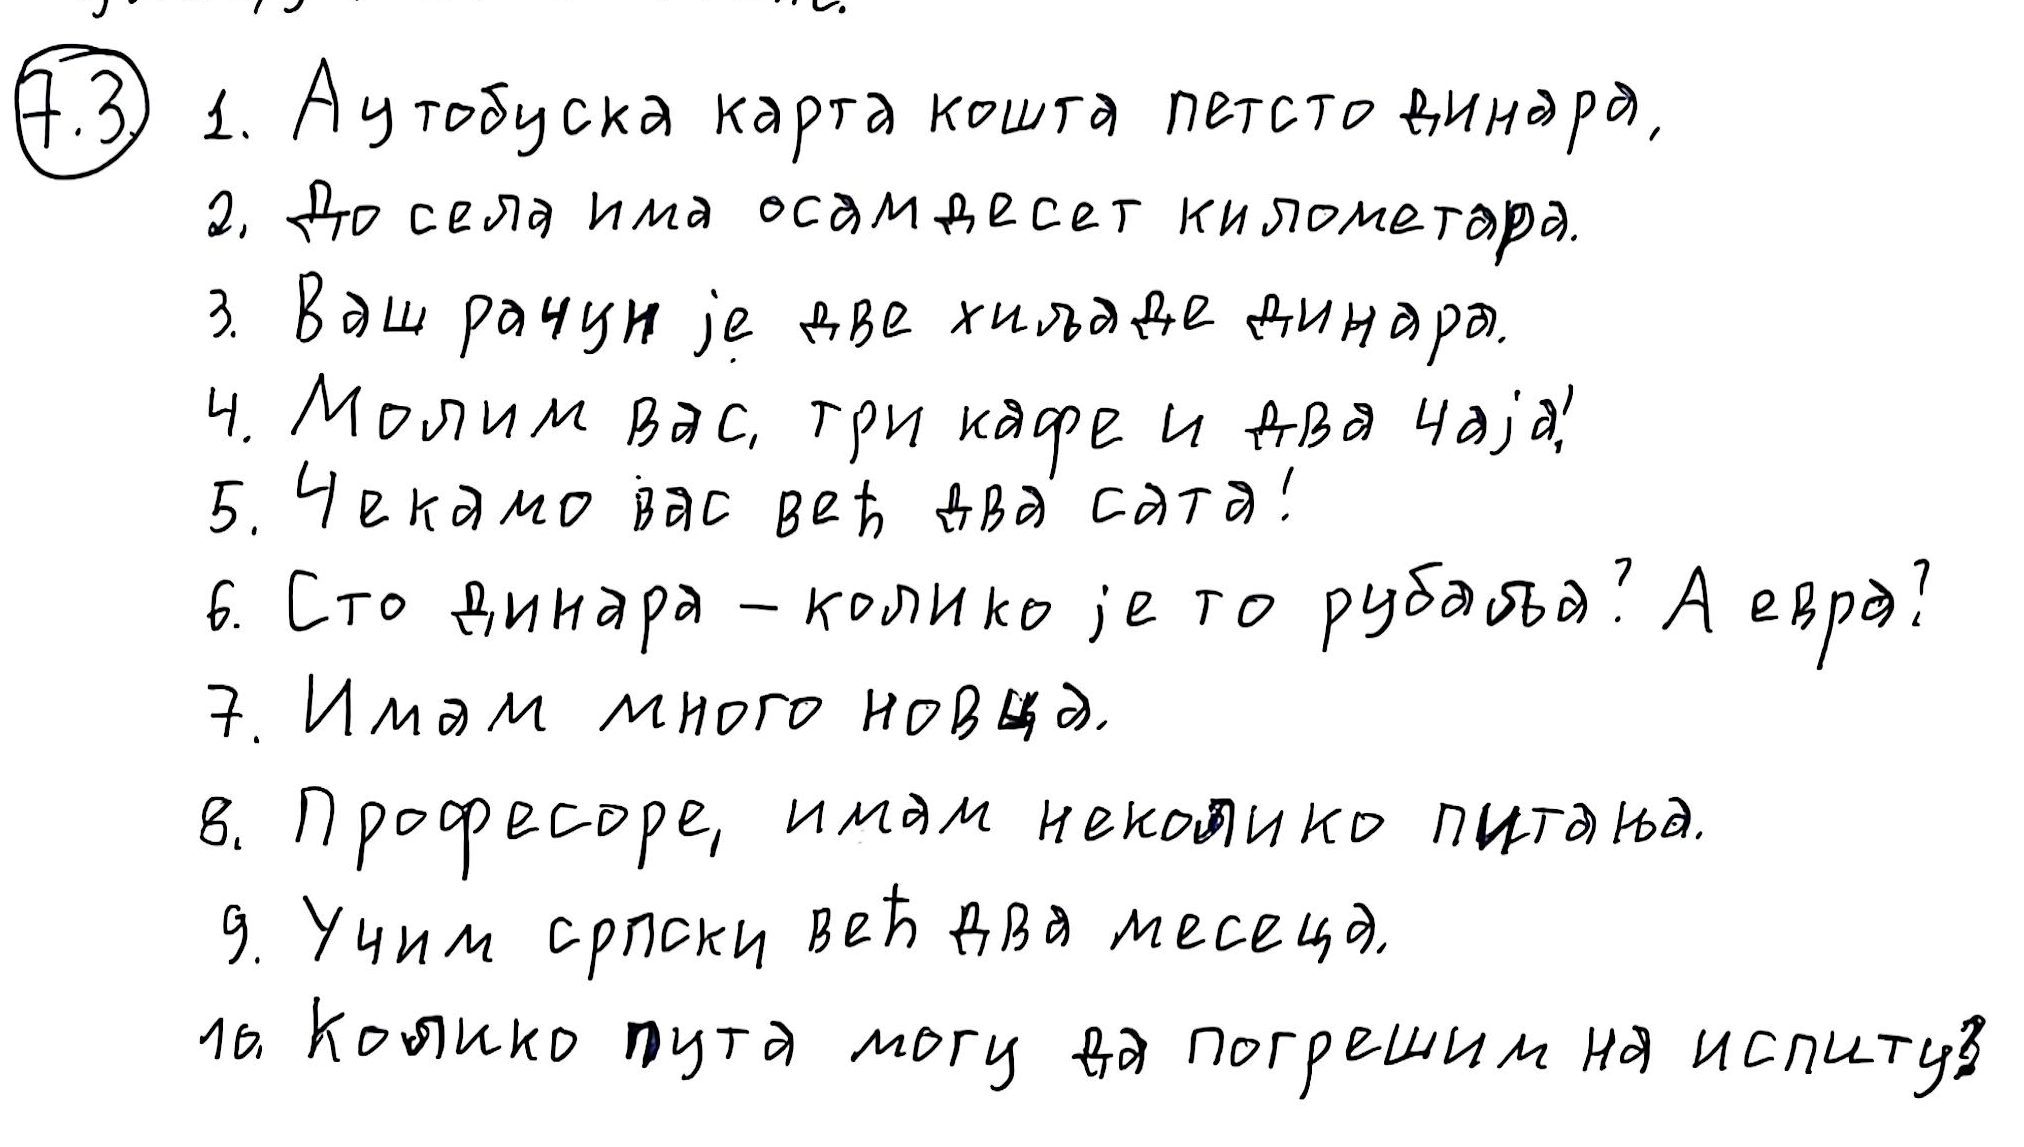 7.3. 1. Аутобуска карта кошта петсто динара.
2. До села има осамдесет километара.
3. Ваш рачун је две хиљаде динара.
4. Молим вас, три кафе и два чаја!
5. Чекамо вас већ два сата!
6. Сто динара – колико је то рубаља? А евра?
7. Имам много новца.
8. Професоре, имам неколико питања.
9. Учим српски већ два месеца.
10. Колико пута могу да погрешим на испиту?